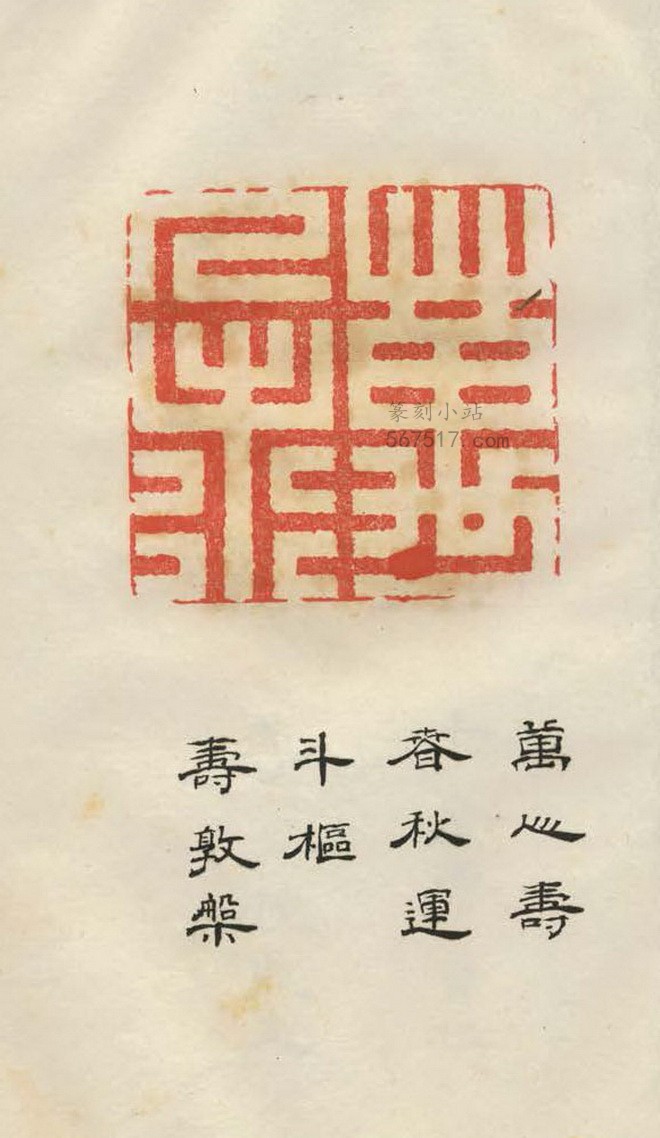 篆刻小站
567517.com
萬心壽
春秋運
斗樞
壽敦槃